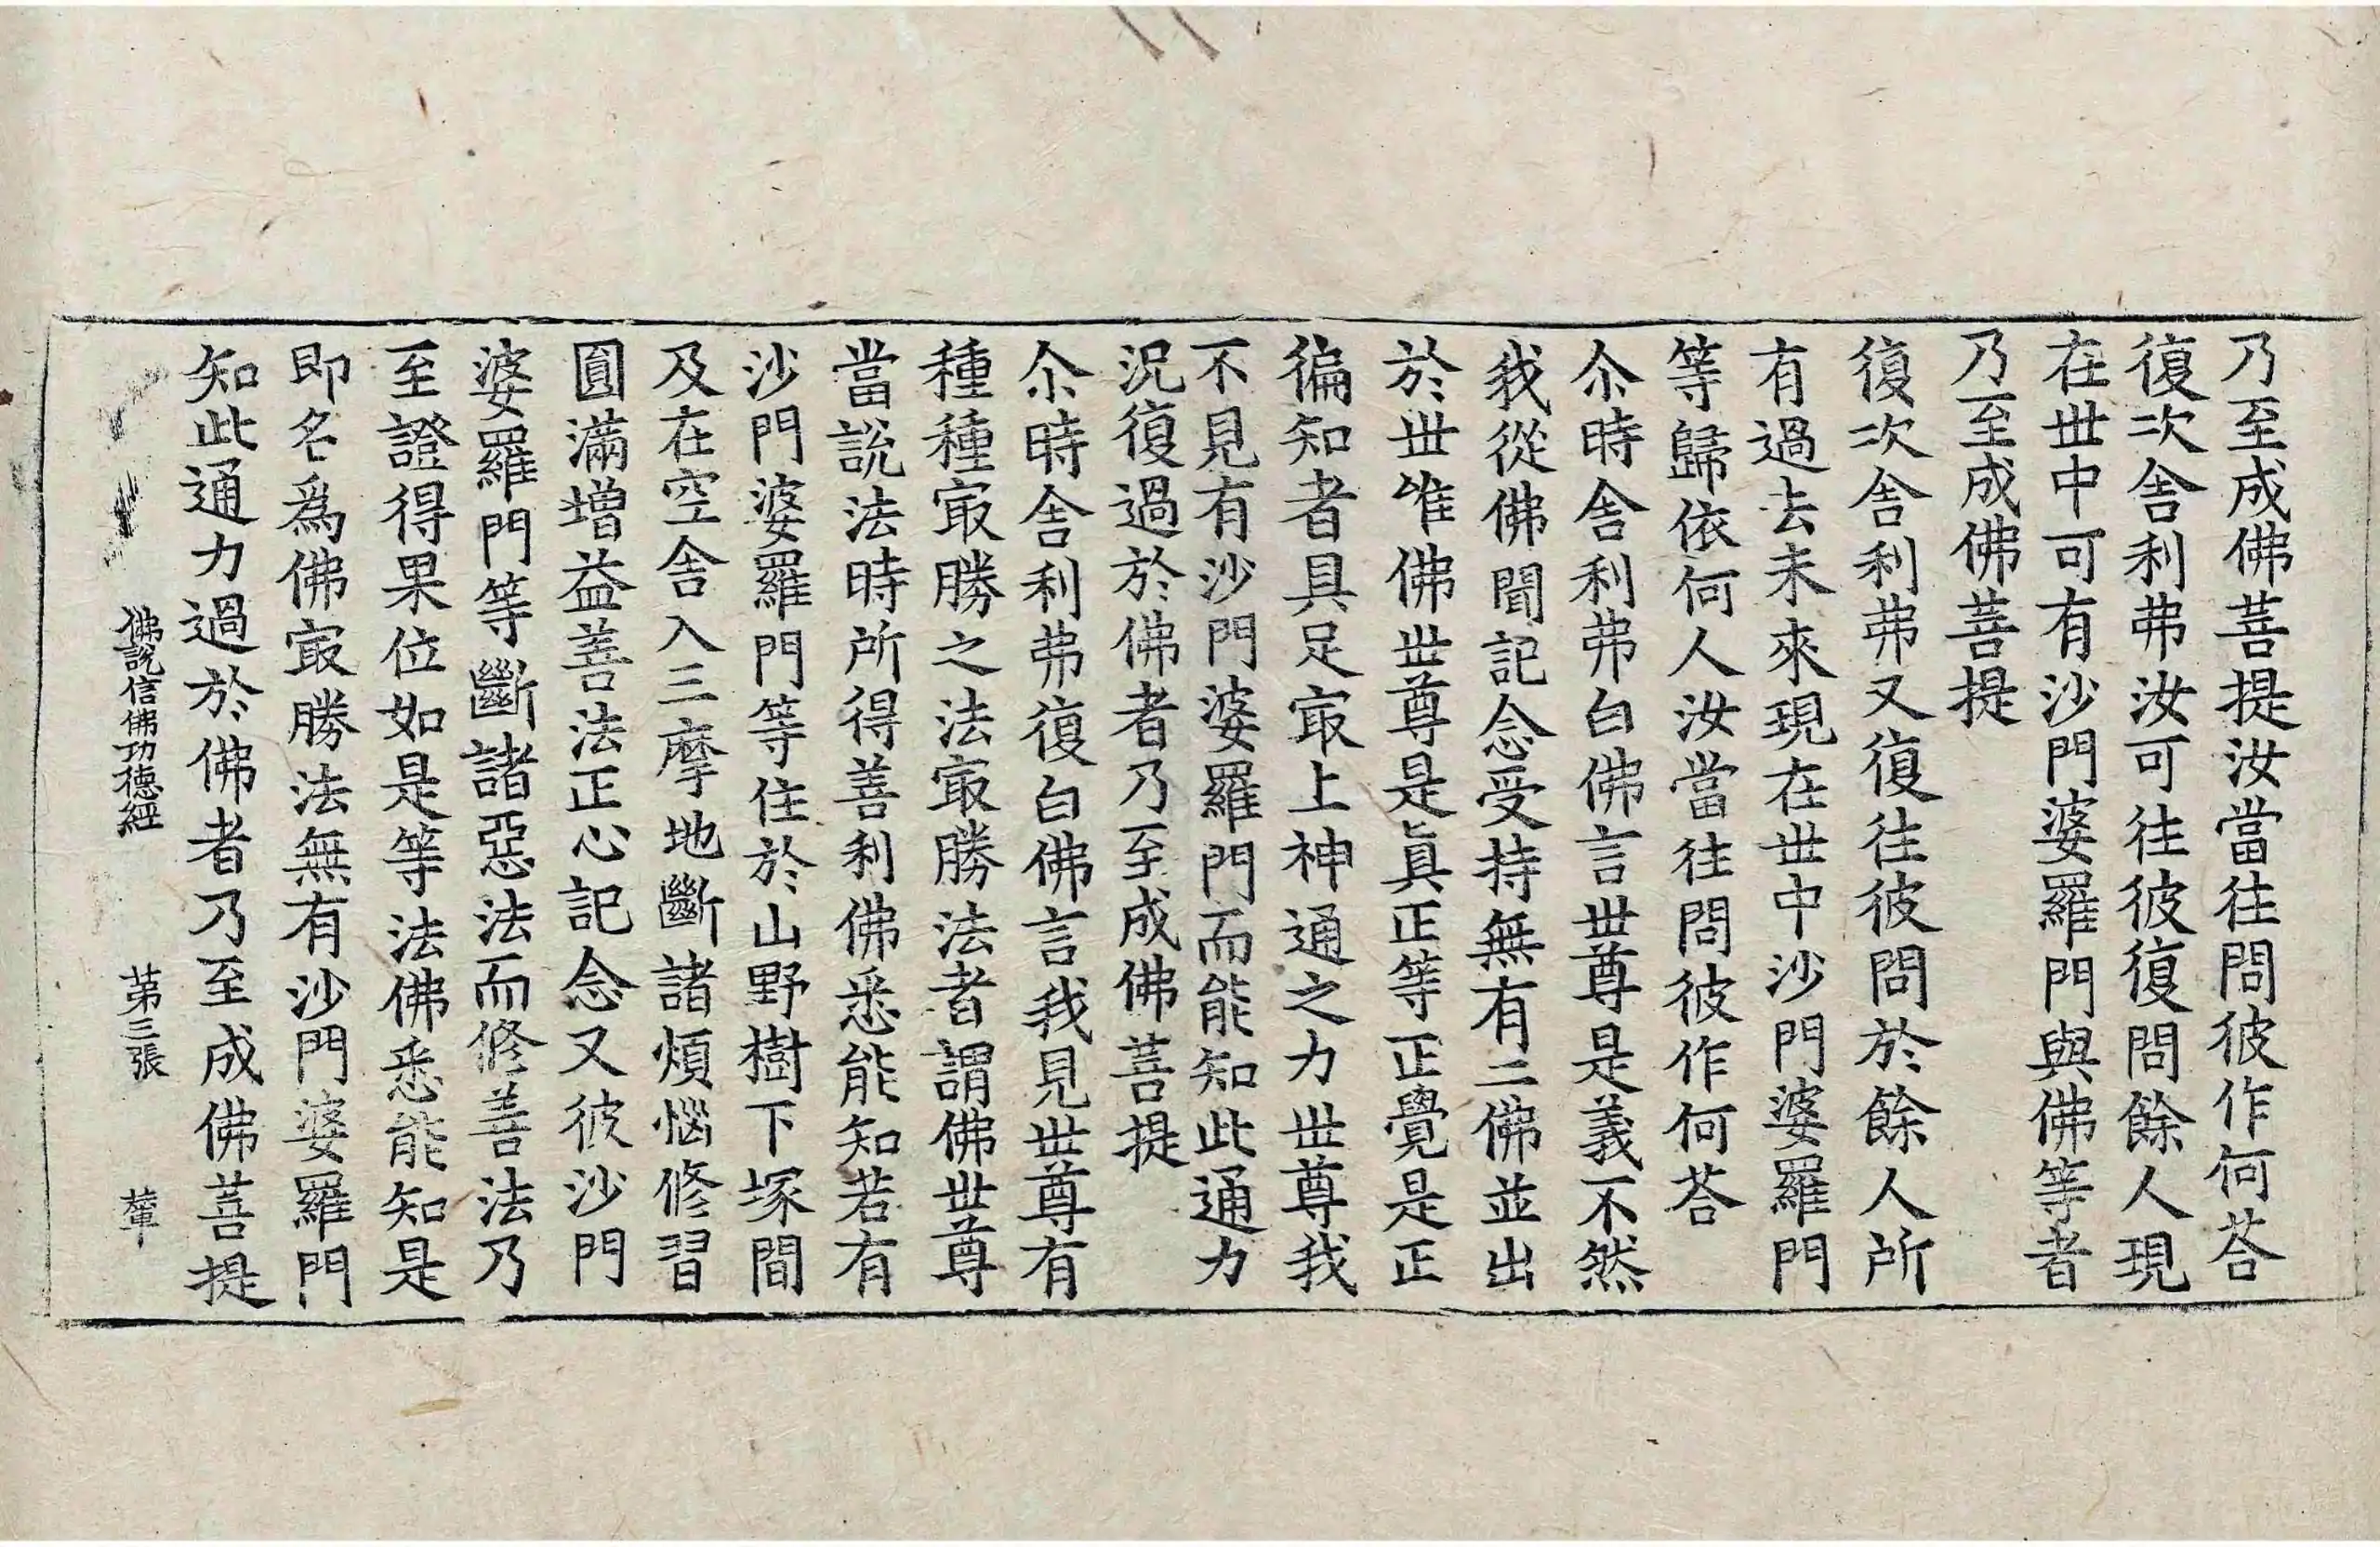 乃至成佛菩提汝當往問彼作何荅
復次舎利弗汝可往彼復問餘人現
在丗中可有沙門婆羅門與佛等者
乃至成佛菩提
復次舎利弗又復往彼問於餘人所
有過去未來現在丗中沙門婆羅門
等歸依何人汝當往問彼作何荅
尒時舎利弗白佛言丗尊是義不然
我從佛聞記念受持無有二佛並出
於丗唯佛丗尊是眞正等正覺是正
徧知者具足㝡上神通之力丗尊我
不見有沙門婆羅門而能知此通力
況復過於佛者乃至成佛菩提
尒時舎利弗復白佛言我見丗尊有
種種㝡勝之法㝡勝法者謂佛丗尊
當說法時所得善利佛悉能知若有
沙門婆羅門等住於山野樹下塚間
及在空舎入三摩地斷諸煩惱修習
圓滿增益善法正心記念又彼沙門
婆羅門等斷諸惡法而修善法乃
至證得果位如是等法佛悉能知是
即名爲佛㝡勝法無有沙門婆羅門
知此通力過於佛者乃至成佛菩提
佛說信佛功德經 第三張